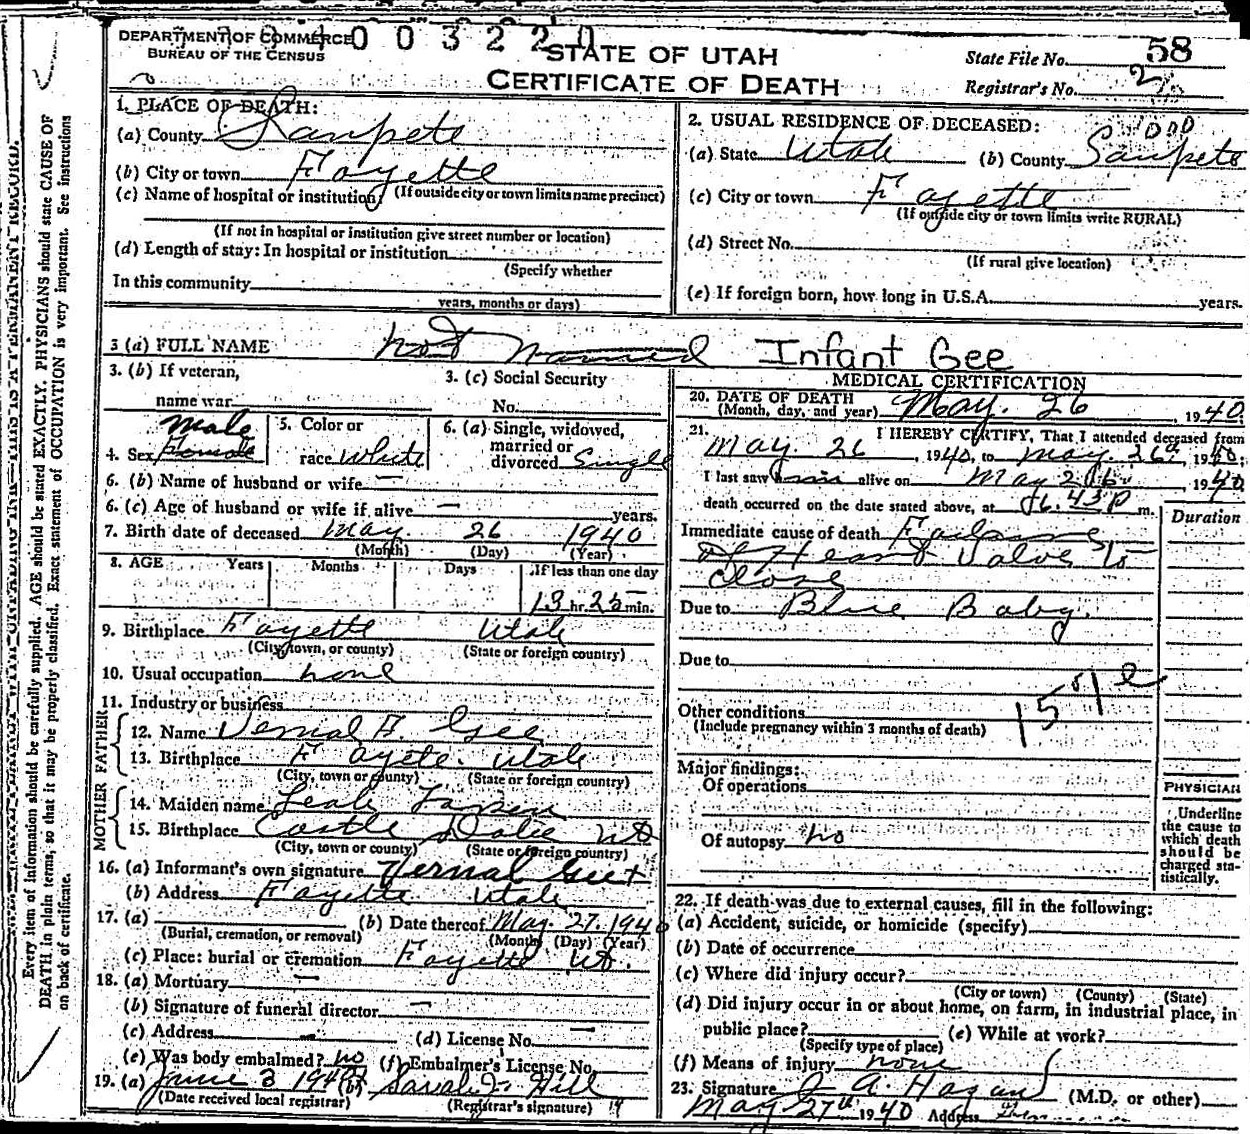 DEPARTMENT OF COMMERCE
BUREAU OF THE CENSUS
003220
STATE OF UTAH
CERTIFICATE OF DEATH
State File No. 58
Registrar's No. 2
1. PLACE OF DEATH:
(a) County Sanpete
(b) City or town Fayette
(If outside city or town limits name precinct)
(c) Name of hospital or institution:
(If not in hospital or institution give street number or location)
(d) Length of stay: In hospital or institution
(Specify whether
In this community
years, months or days)
2. USUAL RESIDENCE OF DECEASED:
(a) State Utah (b) County Sanpete
(c) City or town Fayette
(If outside city or town limits write RURAL)
(d) Street No.
(If rural give location)
(e) If foreign born, how long in U.S.A. years.
3 (a) FULL NAME not named Infant Gee
3. (b) If veteran,
name war
3. (c) Social Security
No.
Male
4. Sex Female
5. Color or
race White
6. (a) Single, widowed,
married or
divorced Single
6. (b) Name of husband or wife —
6. (c) Age of husband or wife if alive — years.
7. Birth date of deceased May 26 1940
(Month) (Day) (Year)
8. AGE Years Months Days If less than one day
13 hr. 25 min.
9. Birthplace Fayette Utah
(City, town, or county) (State or foreign country)
10. Usual occupation none
11. Industry or business
FATHER
12. Name Vernal F. Gee
13. Birthplace Fayete. Utah
(City, town or county) (State or foreign country)
MOTHER
14. Maiden name Leah
15. Birthplace Castle Dale Ut
(City, town or county) (State or foreign country)
16. (a) Informant's own signature Vernal Gee
(b) Address Fayette Utah
17. (a) (b) Date thereof May. 27. 1940
(Burial, cremation, or removal) (Month) (Day) (Year)
(c) Place: burial or cremation Fayette Ut.
18. (a) Mortuary —
(b) Signature of funeral director —
(c) Address (d) License No. —
(e) Was body embalmed? no (f) Embalmer's License No.
19. (a) June 3 1940 (b) Sarah J. Hill
(Date received local registrar) (Registrar's signature)
MEDICAL CERTIFICATION
20. DATE OF DEATH
(Month, day, and year) May. 26 1940
21. I HEREBY CERTIFY, That I attended deceased from
May 26, 1940, to May. 26th, 1940;
I last saw him alive on May 26, 1940
death occurred on the date stated above, at 43 P m.
Duration
Immediate cause of death Failure
of Heart Valve to
close
Due to Blue Baby.
Due to
157 e
Other conditions
(Include pregnancy within 3 months of death)
Major findings:
Of operations
Of autopsy no
PHYSICIAN
Underline
the cause to
which death
should be
charged sta-
tistically.
22. If death was due to external causes, fill in the following:
(a) Accident, suicide, or homicide (specify)
(b) Date of occurrence
(c) Where did injury occur?
(City or town) (County) (State)
(d) Did injury occur in or about home, on farm, in industrial place, in
public place? (e) While at work?
(Specify type of place)
(f) Means of injury none
23. Signature A. Hagan (M.D. or other)
May 27th 1940 Address
Every item of information should be carefully supplied. AGE should be stated EXACTLY. PHYSICIANS should state CAUSE OF
DEATH in plain terms, so that it may be properly classified. Exact statement of OCCUPATION is very important. See instructions
on back of certificate.